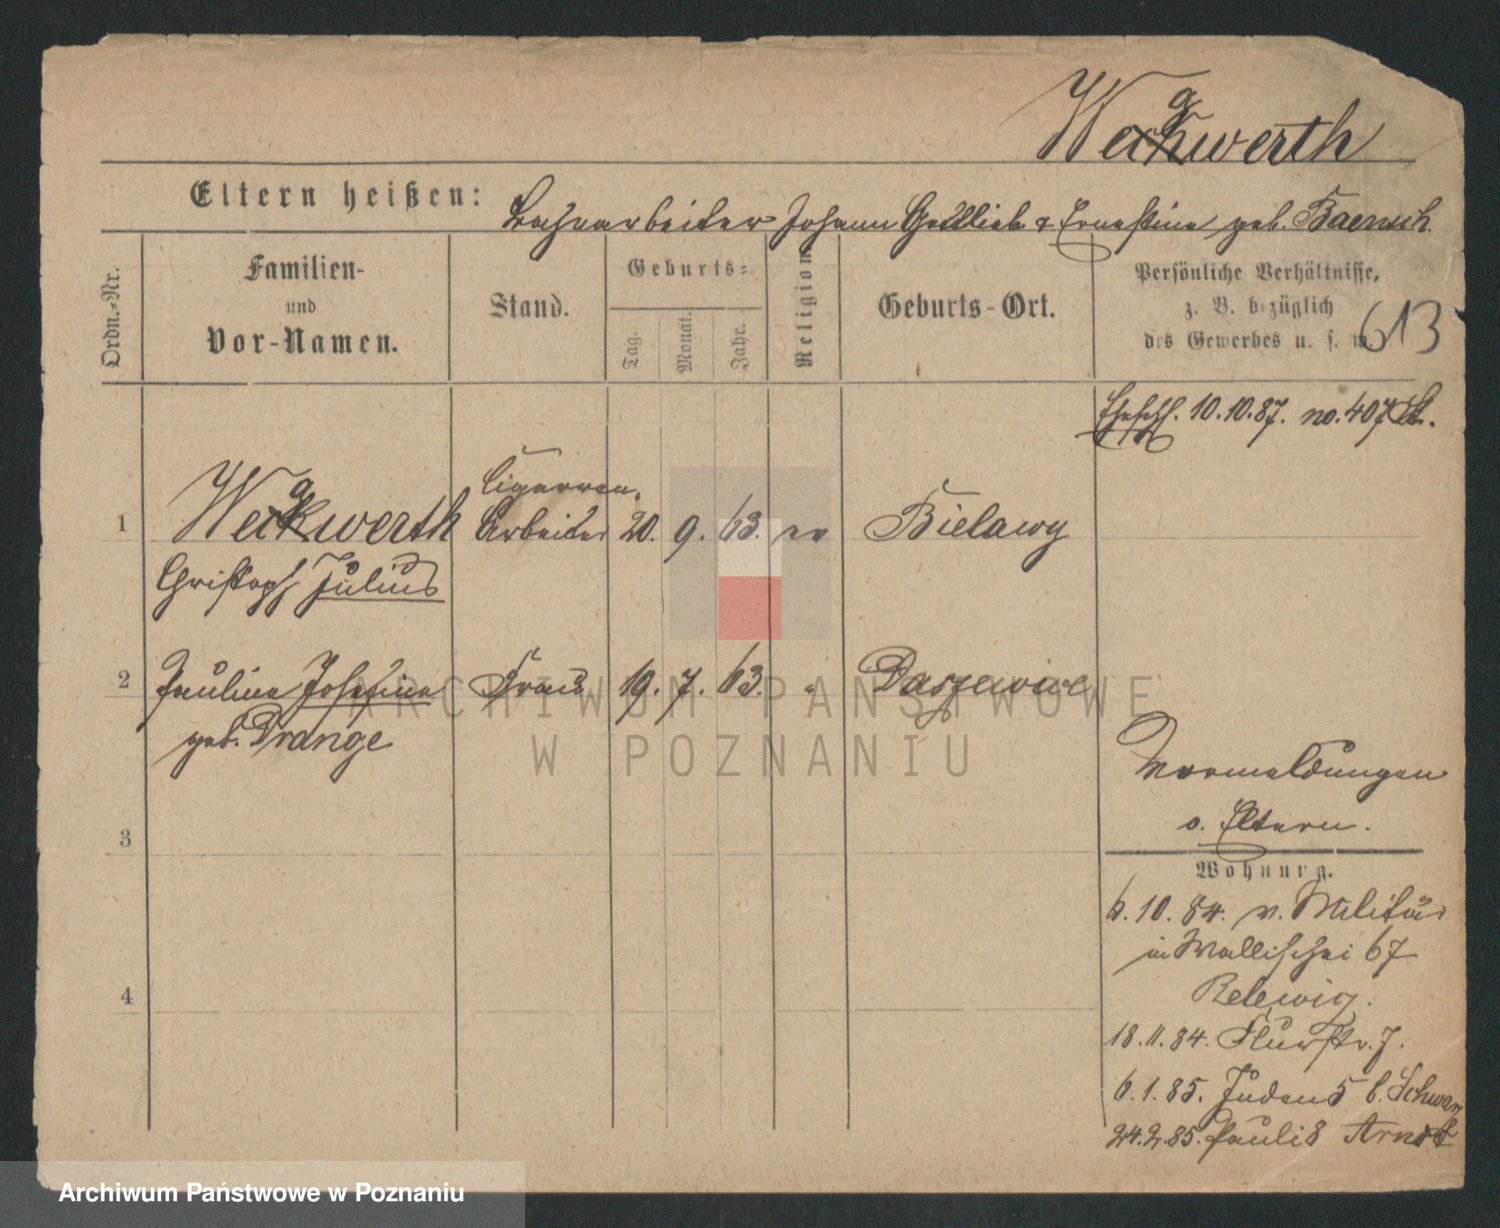 Wegwerth
Eltern heißen: Bahnarbeiter Johann Gottlieb & Ernestine geb. Baensch
Ordn.-Nr.
Familien-
und
Vor-Namen.
Stand.
Geburts-
Tag.
Monat.
Jahr.
Religion
Geburts-Ort.
Persönliche Verhältnisse,
z. B. bezüglich
des Gewerbes u. s. w.
613
Eheschl. 10.10.87. no. 407
1 Wegwerth Cigarren-
Arbeiter 20. 9. 63. ev Bielawy
Christoph Julius
2 Pauline Josefine Frau 19. 7. 63. " Daszewice
geb. Drange
Vormeldungen
s. Eltern.
3
Wohnung.
6.10.84. v. Militär
in Wallischei 67
4
18.11.84. Flurstr. 7.
6.1.85. Juden 5 b. Schwarz
24.2.85. Pauli 8 Arndt
ARCHIWUM PAŃSTWOWE
W POZNANIU
Archiwum Państwowe w Poznaniu